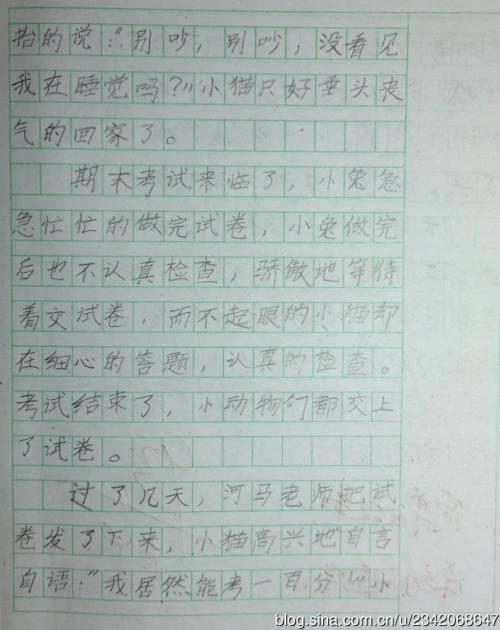 抬的说：“别吵，别吵，没看见
我在睡觉吗？”小猫只好垂头丧
气的回家了。
期末考试来临了，小兔急
急忙忙的做完试卷，小兔做完
后也不认真检查，骄傲地等待
着交试卷，而不起眼的小猫却
在细心的答题，认真的检查。
考试结束了，小动物们都交上
了试卷。
过了几天，河马老师把试
卷发了下来，小猫高兴地自言
自语：“我居然能考一百分”小
blog.sina.com.cn/u/2342068647